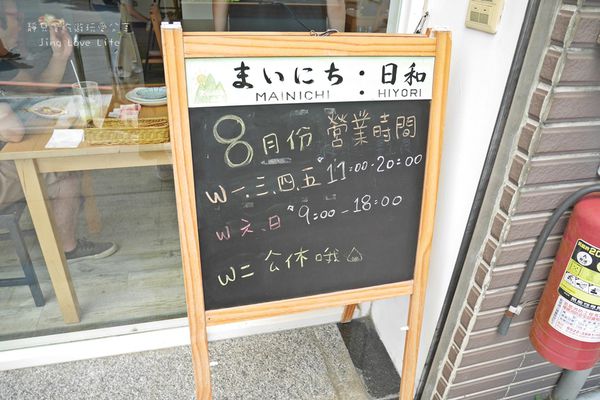 靜兒ㄉ旅遊玩樂公主
Jing Love Life
まいにち：日和
MAINICHI HIYORI
8月份 營業時間
W一、三、四、五 11:00-20:00
W六、日 9:00-18:00
W二 公休哦